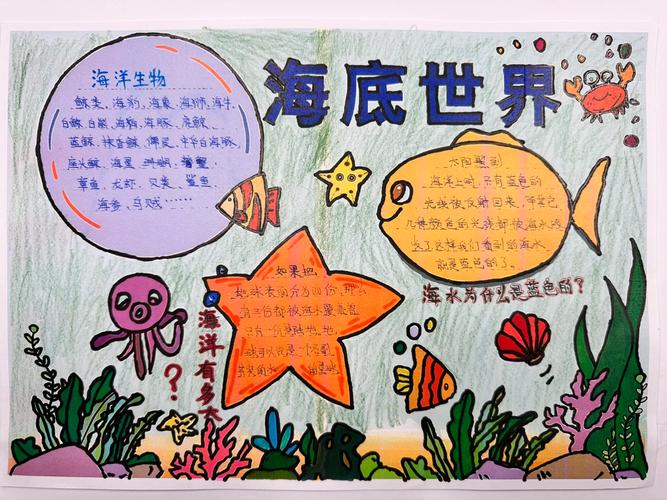 海底世界
海洋生物
鲸类、海豹、海象、海狮、海牛
白鲸、白鲨、海豹、海豚、虎鲸
蓝鲸、抹香鲸、
座头鲸、海星、珊瑚、螃蟹、
章鱼、龙虾、贝类、鲨鱼
海参、乌贼……
太阳照到
海洋上时，只有蓝色的
光线被反射回来，
颜色的光线都被海水吸
收了这样我们看到的海水
就是蓝色的了。
海水为什么是蓝色的？
如果把
地球表面分为100份，那么
份都被海水覆盖着
只有 份是陆地，地
球可以说是一个
海洋有多大
？